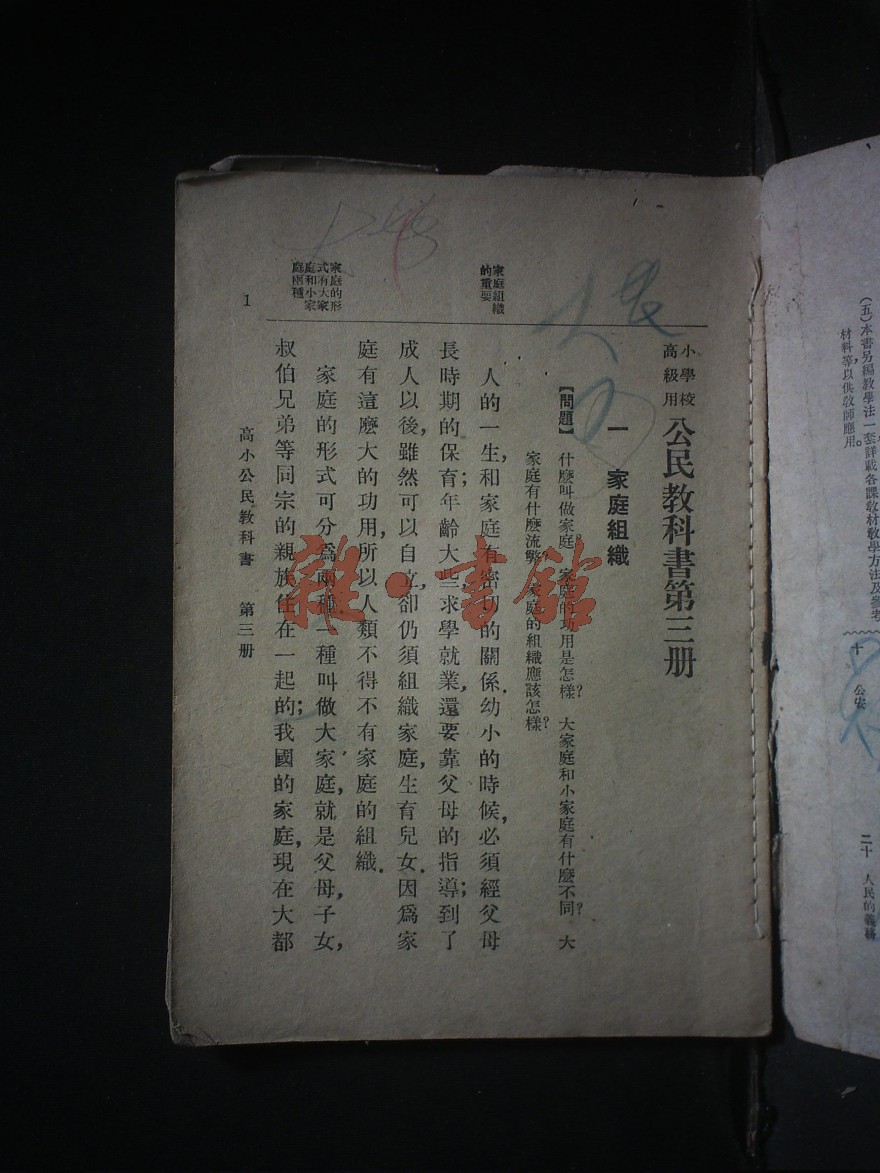 小學校
高級用
公民教科書第三册
一 家庭組織
【問題】 什麼叫做家庭? 家庭的功用是怎樣? 大家庭和小家庭有什麼不同? 大
家庭有什麼流弊? 家庭的組織應該怎樣?
家庭組織
的重要
人的一生,和家庭有密切的關係.幼小的時候,必須經父母
長時期的保育;年齡大些,求學就業,還要靠父母的指導;到了
成人以後,雖然可以自立,卻仍須組織家庭,生育兒女.因爲家
庭有這麽大的功用,所以人類不得不有家庭的組織.
家庭的形
式有大家
庭和小家
庭兩種
家庭的形式可分爲兩種,一種叫做大家庭,就是父母,子女,
叔伯兄弟等同宗的親族住在一起的;我國的家庭,現在大都
1
高小公民教科書 第三册
雜·書館
(五)本書另編教學法一套,詳載各課教材教學方法及參考
材料等,以供教師應用.
十 公安
二十 人民的義務